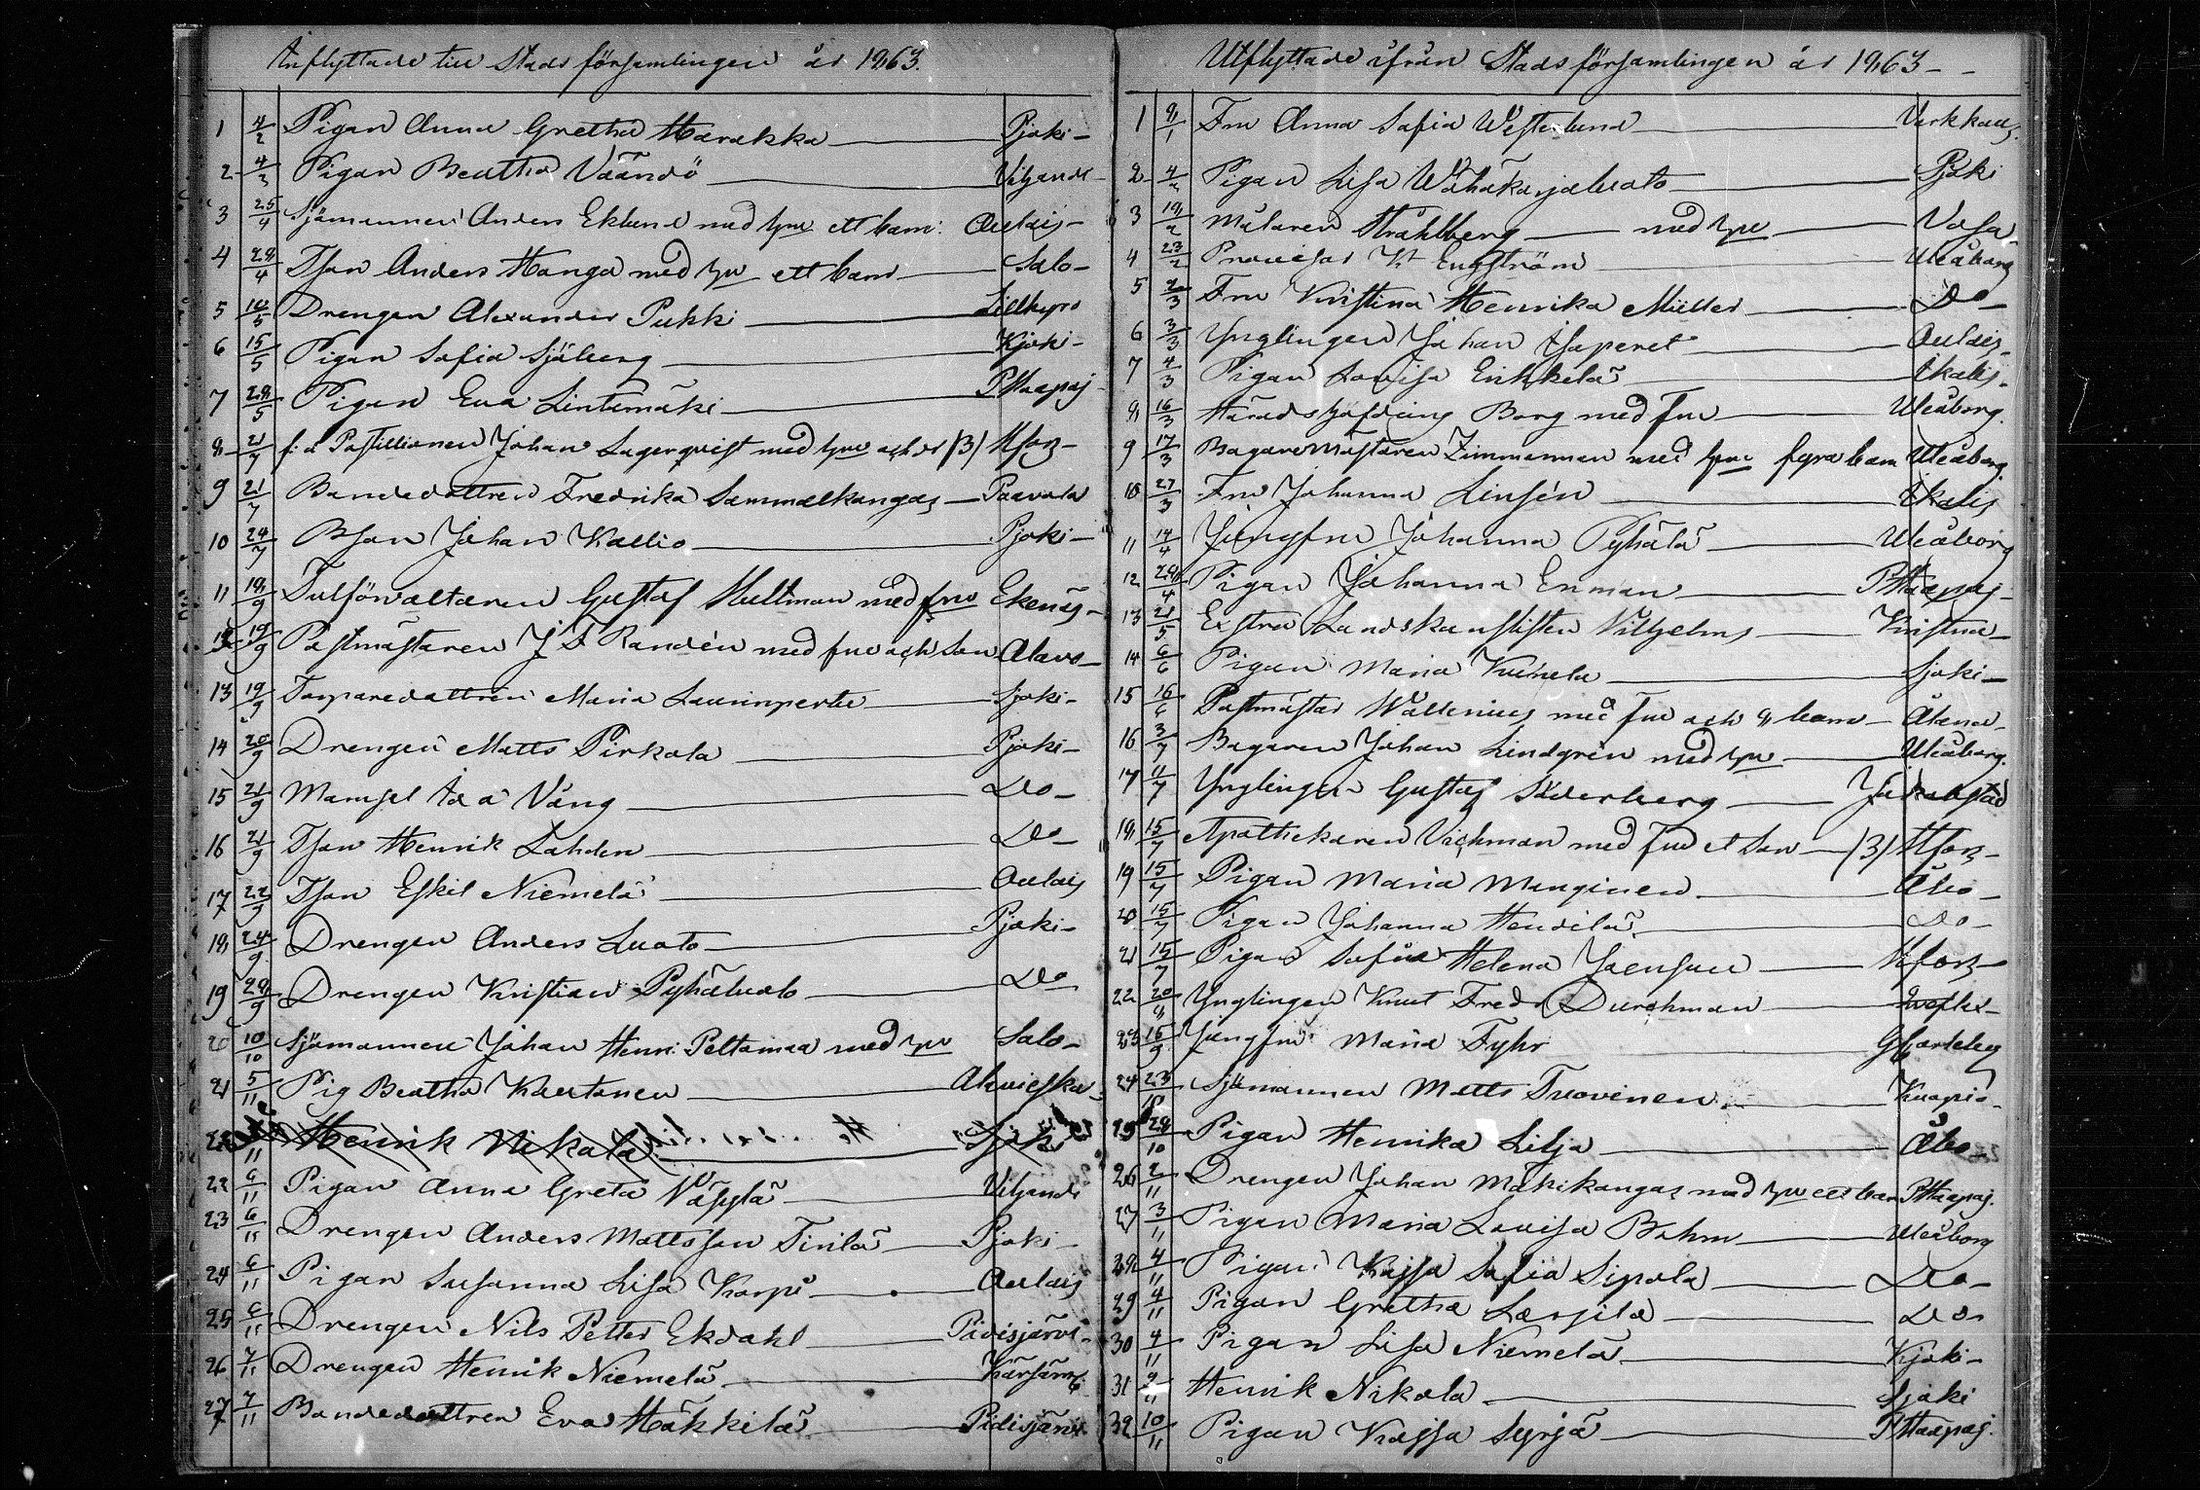 Inflyttade till Stadsförsamlingen år 1863.
1 4/2 Pigan Anna Gretha Harakka Pjoki
2 4/3 Pigan Beatha Väändö Viljands
3 25/4 Sjömannen Anders Eklund med hru ett barn Oulais
4 28/4 Json Anders Hanga med hru ett barn Salo
5 10/5 Drengen Alexander Pukki Lillkyro
6 15/5 Pigan Sofia Sjöberg Kjoki
7 28/5 Pigan Eva Lintumäki PHaapaj
8 21/7 f:d Postillionen Johan Lagerqvist med hru och dr (3) Hfors
9 21/7 Bondedottren Fredrika Sammalkangas Paavola
10 24/7 Bson Johan Kallio Pjoki
11 18/9 Tulförvaltaren Gustaf Hultman med fru Ekenäs
12 19/9 Postmästaren J F Randén med fru och Son Alavo
13 19/9 Torparedottren Maria Sjoki
14 20/9 Drengen Matts Pirkola Pjoki
15 21/9 Mamsel Ida Väng Do
16 21/9 Json Henrik Lahden Do
17 22/9 Json Eskil Niemelä Oulais
18 24/9 Drengen Anders Luoto Pjoki
19 28/9 Drengen Kristian Pyhäluoto Do
20 10/10 Sjömannen Johan Henr. Peltomaa med hru Salo
21 5/11 Pig Beatha Kaertanen Alavieska
22 /11 Henrik Nikola Sjoki
22 6/11 Pigan Anna Greta Näpplä Viljands
23 6/11 Drengen Anders Mattsson Tirilä Pjoki
24 6/11 Pigan Susanna Lisa Karpi Oulais
25 6/11 Drengen Nils Petter Ekdahl Pidisjärvi
26 7/11 Drengen Henrik Niemelä Kärsäm
27 7/11 Bondedottren Eva Häkkilä Pidisjärvi
Utflyttade ifrån Stadsförsamlingen år 1863
1 8/1 Fru Anna Sofia Westerlund Varkaus
2 4/2 Pigan Lisa Wähäkarjaluoto Pjoki
3 18/2 Målaren Stråhlberg med hru Vasa
4 23/2 Provisor K Engström Uleåborg
5 2/3 Fru Kristina Henrika Müller Do
6 3/3 Ynglingen Johan Oulais
7 4/3 Pigan Lovisa Erkkelä Ikalis
8 16/3 Häradshöfding Borg med fru Uleåborg
9 17/3 Bagaremästaren Zimmerman med hru fyra barn Uleåborg
10 27/3 Fru Johanna Linsén Ikalis
11 14/4 Jungfru Johanna Pyhälä Uleåborg
12 28/4 Pigan Johanna Enman PHaapaj
13 21/5 Extra Landskanslisten Vilhjelms Kristina
14 6/6 Pigan Maria Kuinela Sjoki
15 16/6 Postmästar Wallenius med fru och 8 barn Åland
16 3/7 Bagaren Johan Lindgrén med hru Uleåborg
17 11/7 Ynglingen Gustaf Söderberg Jakobstad
18 15/7 Apothekaren Vichman med fru et Son (3) Hfors
19 15/7 Pigan Maria Manginen Åbo
20 15/7 Pigan Johanna Hendilä Do
21 15/7 Pigan Sofia Helena Joensuu Hfors
22 20/8 Ynglingen Knut Fredr Durchman
23 16/9 Jungfru Maria Fyhr Gkarleby
24 23/10 Sjömannen Matts Tuovinen Kuopio
25 28/10 Pigan Henrika Lilja Åbo
26 2/11 Drengen Johan Mäkikangas med hru ett barn PHaapaj
27 3/11 Pigan Maria Lovisa Bohm Uleåborg
28 4/11 Pigan Kajsa Sofia Sipola Do
29 4/11 Pigan Gretha Lassila Do
30 4/11 Pigan Lisa Niemelä Kjoki
31 9/11 Henrik Nikola Sjoki
32 10/11 Pigan Kajsa Syrjä PHaapaj